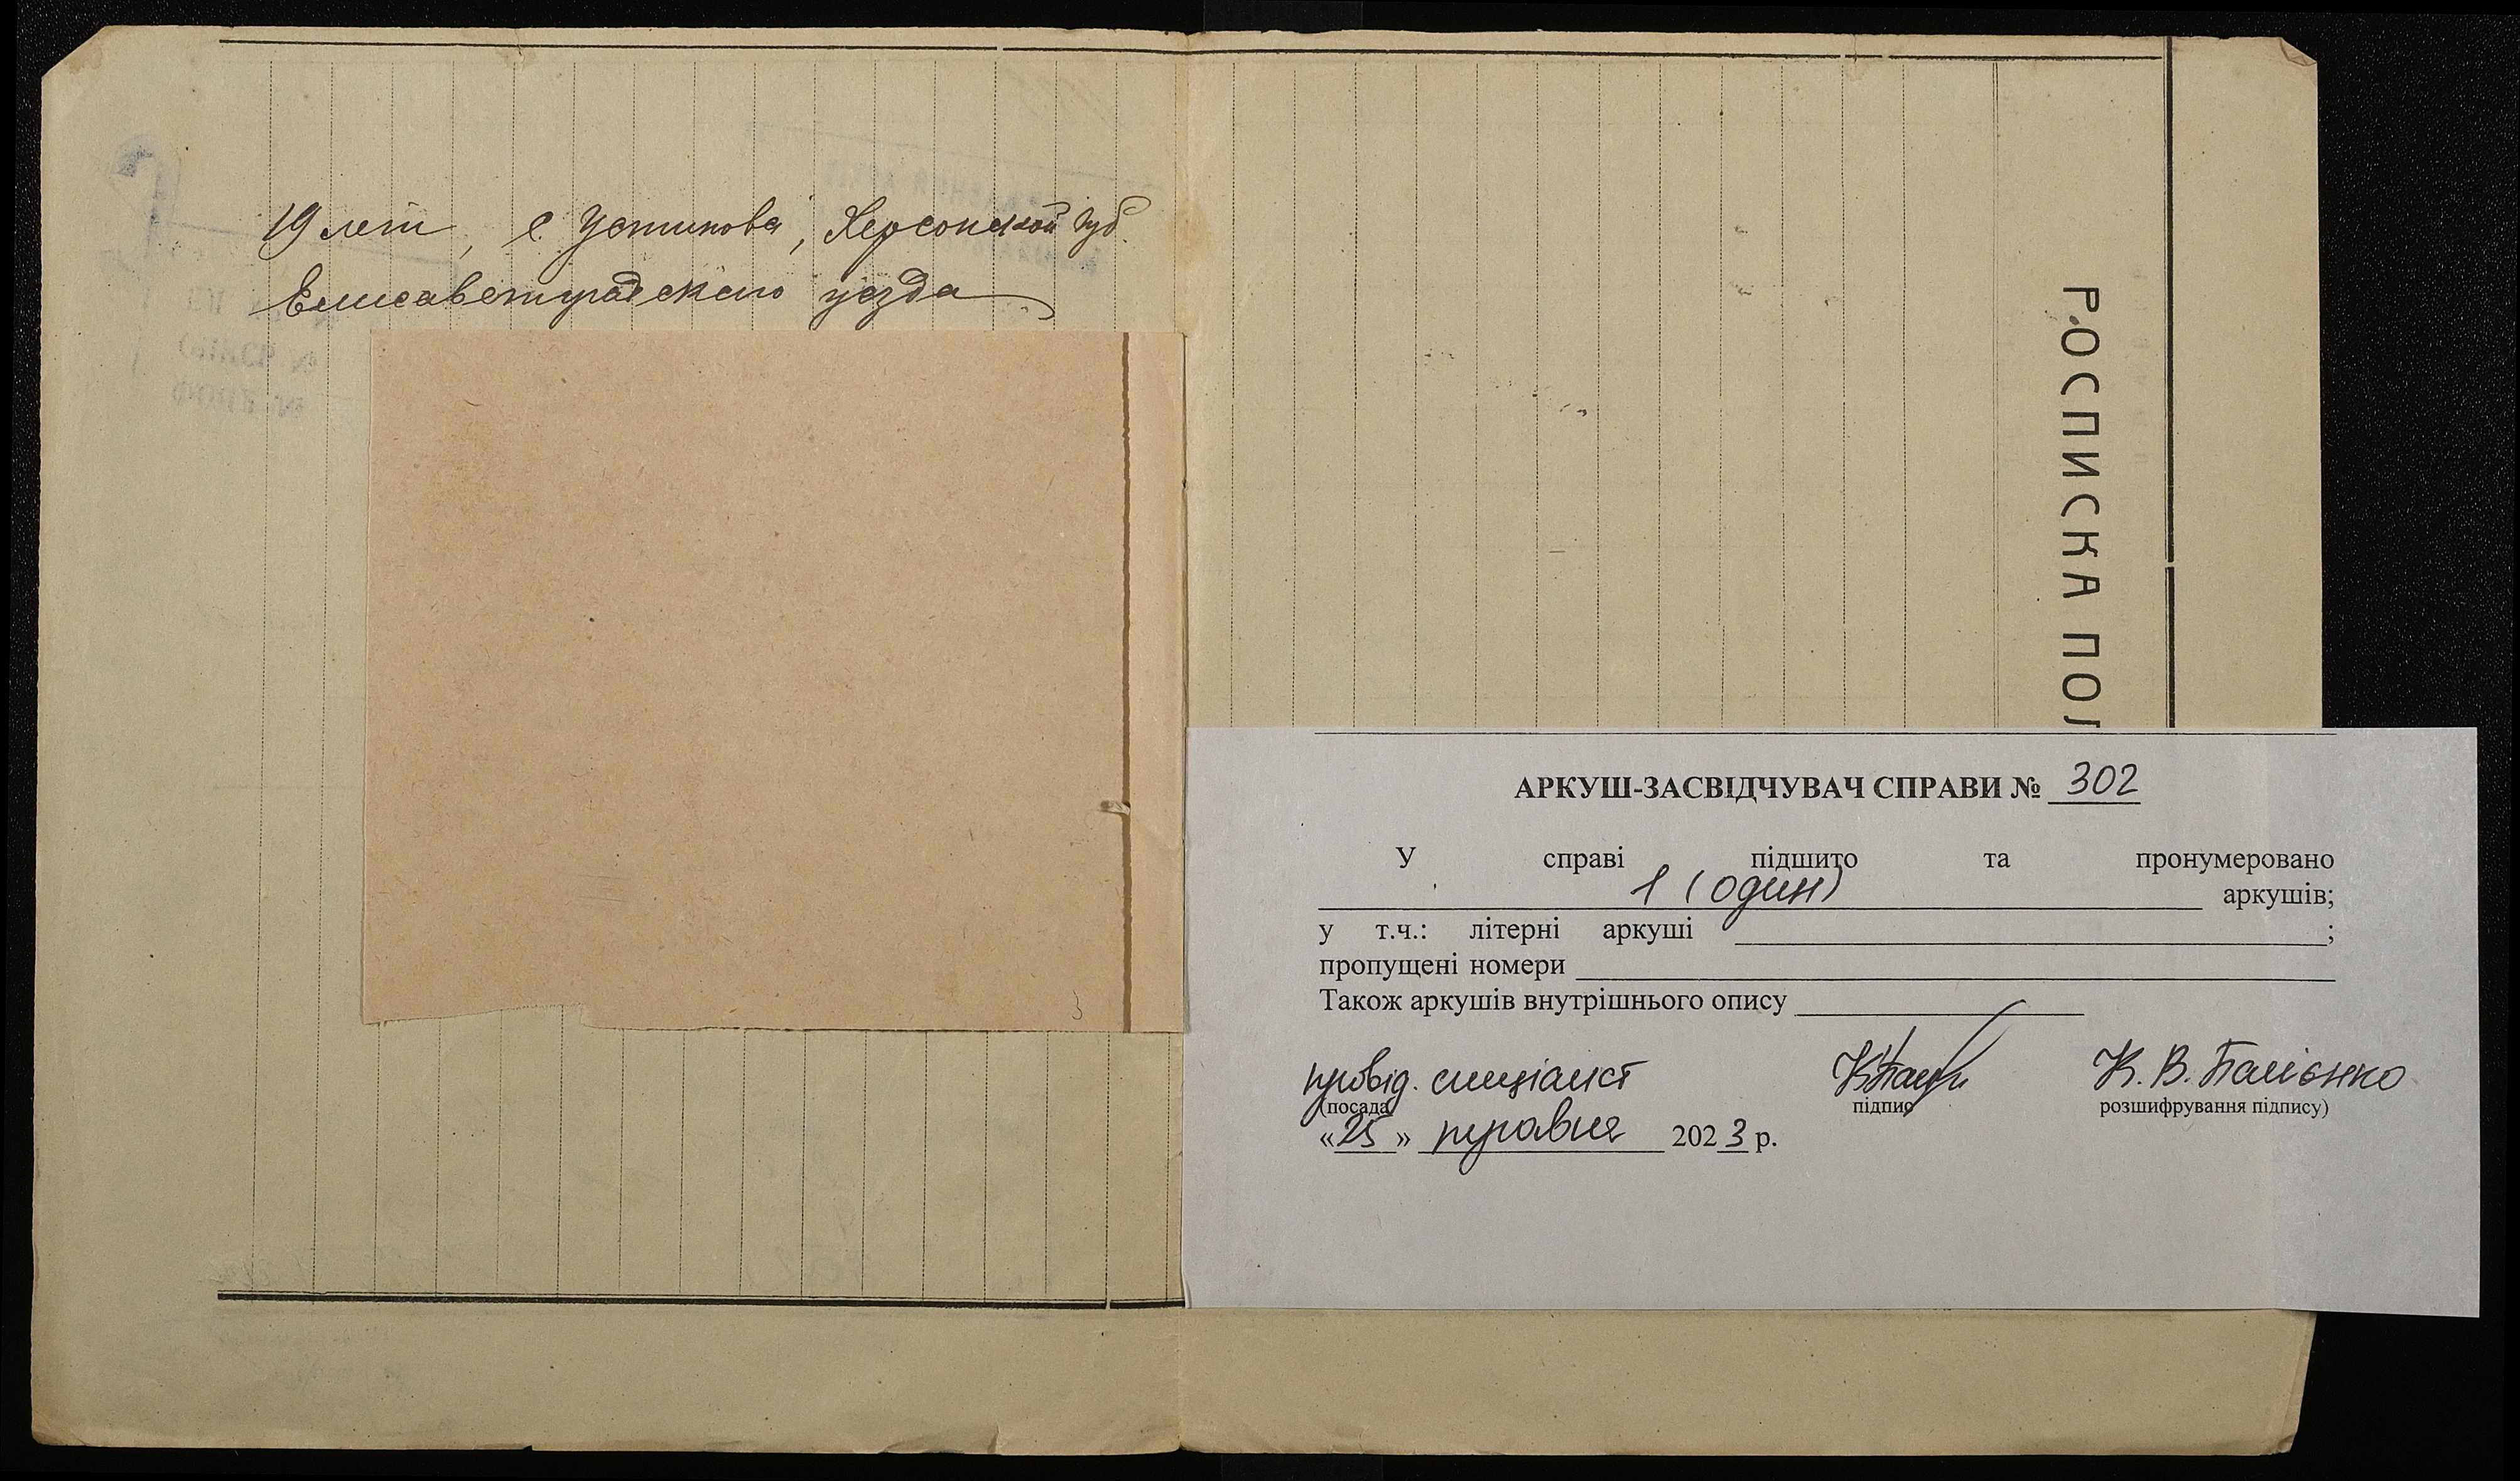 19 лет, с. Устинова, Херсонской губ.
Елисаветградского уезда
РОСПИСКА ПОЛ
АРКУШ-ЗАСВІДЧУВАЧ СПРАВИ № 302
У справі підшито та пронумеровано
1 (один) аркушів;
у т.ч.: літерні аркуші ;
пропущені номери
Також аркушів внутрішнього опису
провід. спеціаліст К. В. Палієнко
(посада підпис розшифрування підпису)
«25» травня 2023 р.